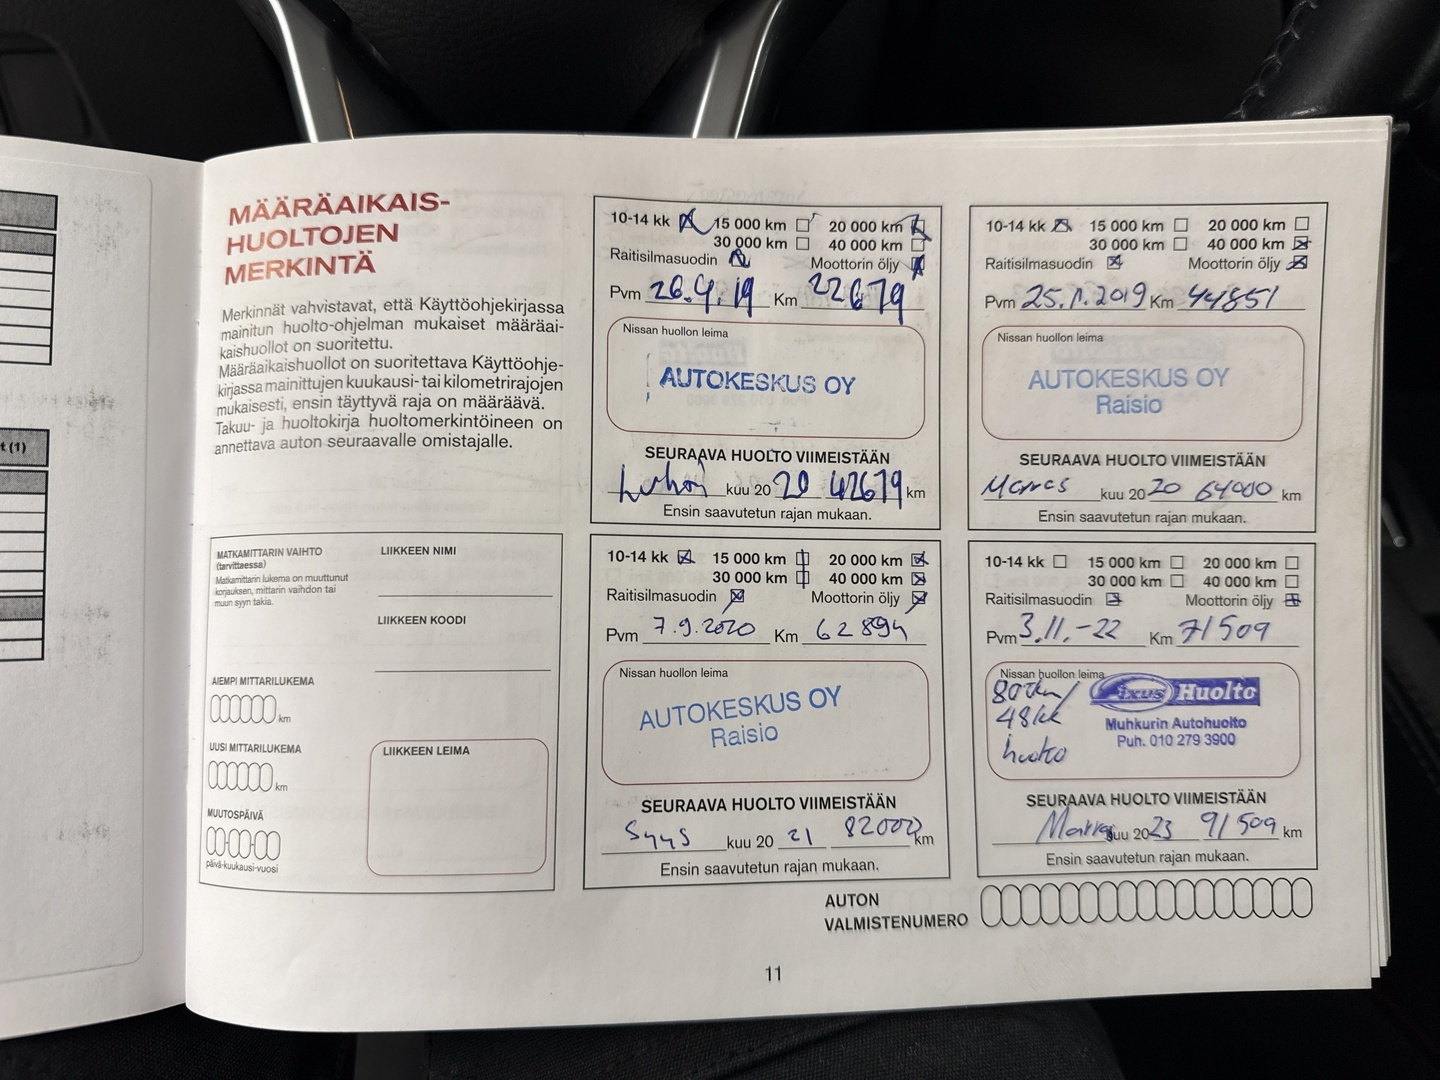 t (1)
MÄÄRÄAIKAIS-
HUOLTOJEN
MERKINTÄ
Merkinnät vahvistavat, että Käyttöohjekirjassa
mainitun huolto-ohjelman mukaiset määräai-
kaishuollot on suoritettu.
Määräaikaishuollot on suoritettava Käyttöohje-
kirjassa mainittujen kuukausi- tai kilometrirajojen
mukaisesti, ensin täyttyvä raja on määräävä.
Takuu- ja huoltokirja huoltomerkintöineen on
annettava auton seuraavalle omistajalle.
MATKAMITTARIN VAIHTO
(tarvittaessa)
Matkamittarin lukema on muuttunut
korjauksen, mittarin vaihdon tai
muun syyn takia.
LIIKKEEN NIMI
LIIKKEEN KOODI
AIEMPI MITTARILUKEMA
km
UUSI MITTARILUKEMA
km
MUUTOSPÄIVÄ
päivä-kuukausi-vuosi
LIIKKEEN LEIMA
10-14 kk 15 000 km 20 000 km
30 000 km 40 000 km
Raitisilmasuodin Moottorin öljy
Pvm 26.4.19 Km 22679
Nissan huollon leima
AUTOKESKUS OY
SEURAAVA HUOLTO VIIMEISTÄÄN
kuu 20 20 42679 km
Ensin saavutetun rajan mukaan.
10-14 kk 15 000 km 20 000 km
30 000 km 40 000 km
Raitisilmasuodin Moottorin öljy
Pvm 25.11.2019 Km 44851
Nissan huollon leima
AUTOKESKUS OY
Raisio
SEURAAVA HUOLTO VIIMEISTÄÄN
Marras kuu 20 20 64000 km
Ensin saavutetun rajan mukaan.
10-14 kk 15 000 km 20 000 km
30 000 km 40 000 km
Raitisilmasuodin Moottorin öljy
Pvm 7.9.2020 Km 62894
Nissan huollon leima
AUTOKESKUS OY
Raisio
SEURAAVA HUOLTO VIIMEISTÄÄN
Syys kuu 20 21 82000 km
Ensin saavutetun rajan mukaan.
10-14 kk 15 000 km 20 000 km
30 000 km 40 000 km
Raitisilmasuodin Moottorin öljy
Pvm 3.11.-22 Km 71509
Nissan huollon leima
80tkm/
48kk
huolto
Fixus Huolto
Muhkurin Autohuolto
Puh. 010 279 3900
SEURAAVA HUOLTO VIIMEISTÄÄN
Marras kuu 20 23 91509 km
Ensin saavutetun rajan mukaan.
AUTON
VALMISTENUMERO
11